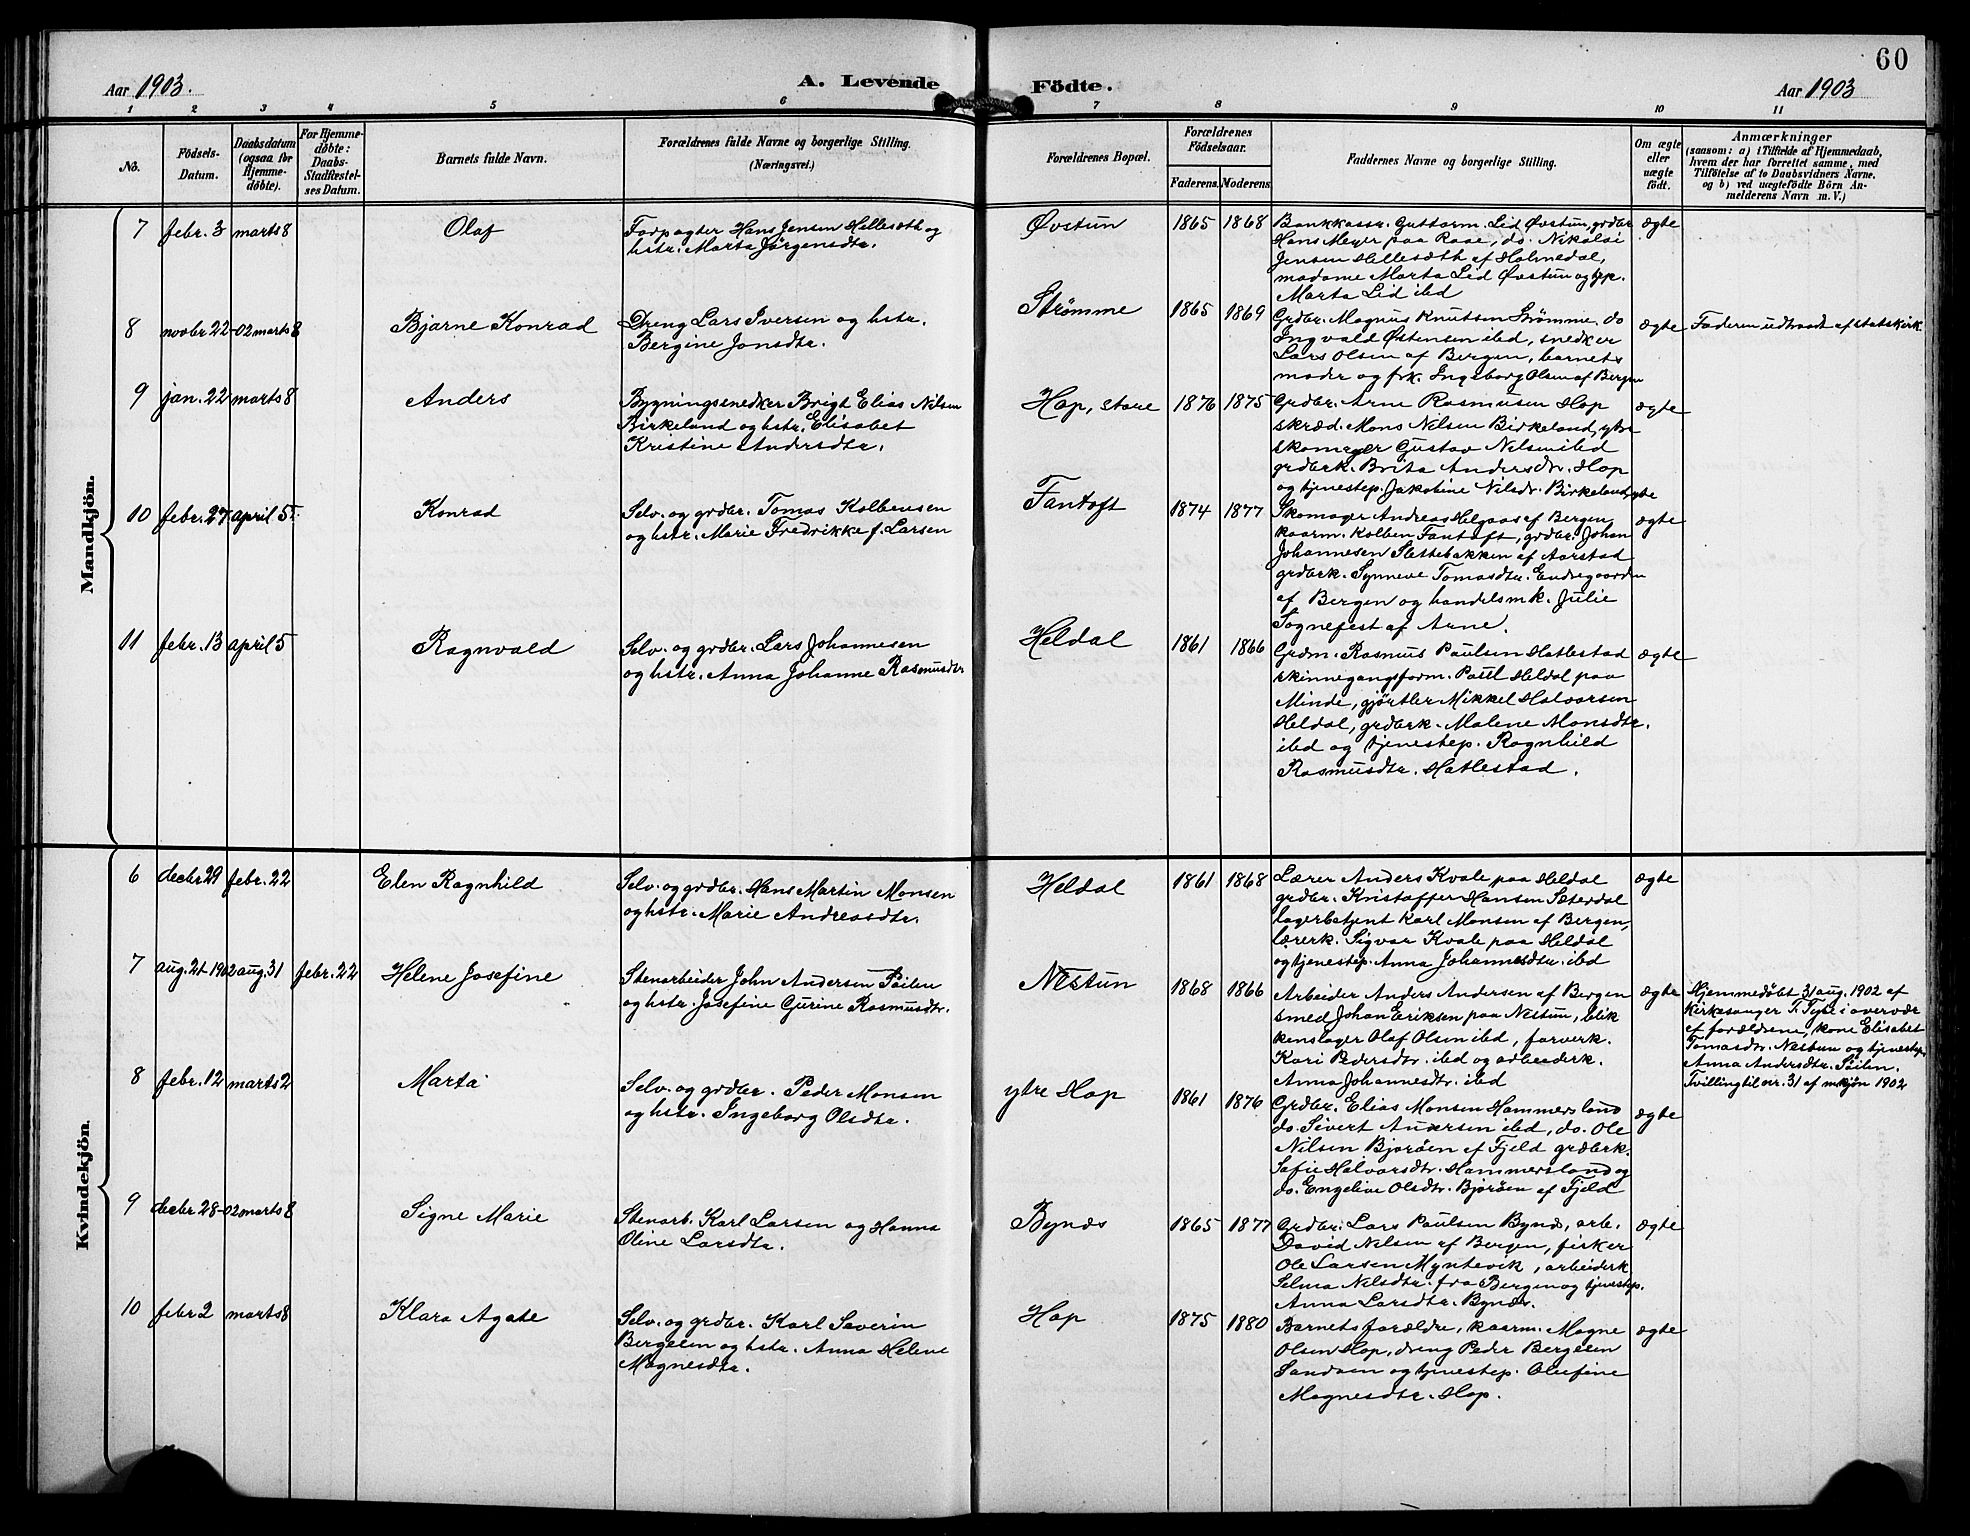 60
Aar 1903.
A. Levende Födte.
Aar 1903
1 2 3 4 5 6 7 8 9 10 11
No.
Födsels-
Datum.
Daabsdatum
(ogsaa for
Hjemme-
døbte).
For Hjemme-
døbte:
Daabs-
Stadfæstel-
ses Datum.
Barnets fulde Navn.
Forældrenes fulde Navne og borgerlige Stilling.
(Næringsvei.)
Forældrenes Bopæl.
Forældrenes
Födselsaar.
Faderens. Moderens.
Faddernes Navne og borgerlige Stilling.
Om ægte
eller
uægte
födt.
Anmærkninger
(saasom: a) i Tilfælde af Hjemmedaab,
hvem der har forrettet samme, med
Tilföielse af to Daabsvidners Navne.
og b) ved uægtefödte Börn An-
melderens Navn m. V.)
Mandkjön.
7 febr. 3 marts 8
Olaf
Forpagter Hans Jensen Hellesøth og
hstr. Marta Jørgensdtr.
Øvstun
1865 1868
Bankkassr. Guttorm Lid Øvstun, grdbr
Hans Meyer paa Raae, do. Nikolai
Jensen Hellesæth af Holmedal,
madame Marta Lid Øvstun og
Marta Lid ibd
ægte
8 novbr 22-02 marts 8
Bjarne Konrad
Dreng Lars Iversen og hstr.
Bergine Jonsdtr.
Strømme
1865 1869
Grdbr. Magnus Knutsen Strømme, do
Ingvald Østensen ibd, snedker
Lars Olsen af Bergen, barnets
moder og frk. Ingeborg Olsen af Bergen
ægte
Faderen udtraadt af statskirk.
9 jan. 22 marts 8
Anders
Bygningssnedker Brigt Elias Nilsen
Birkeland og hstr. Elisabet
Kristine Andersdtr.
Hop, store
1876 1875
Grdbr. Arne Rasmusen Hop
skræd. Mons Nilsen Birkeland, ytre
skomager Gustav Nilsen ibd
grdbrk. Brita Andersdr. Hop
og tjenestep. Jakobine Nilsdr. Birkeland, ytre
ægte
10 febr. 27 april 5.
Konrad
Selv. og grdbr. Tomas Kolbensen
og hstr. Marie Fredrikke f. Larsen
Fantoft
1874 1877
Skomager Andreas Helgaas af Bergen
kaarm. Kolben Fantoft, grdbr. Johan
Johannesen Slettebakken af Aarstad
grdbrk. Synneve Tomasdtr. Endregaarden
af Bergen og handelsmk. Julie
Sognefest af Arne.
ægte
11 febr. 13 april 5
Ragnvald
Selv. og grdbr. Lars Johannesen
og hstr. Anna Johanne Rasmusdtr
Heldal
1861 1866
Grdm. Rasmus Paulsen Hatlestad
skinnegangsform. Paul Heldal paa
Minde, gjørtler Mikkel Halvorsen
Heldal, grdbrk. Malene Monsdtr.
ibd og tjenestep. Ragnhild
Rasmusdtr. Hatlestad.
ægte
Kvindekjön.
6 decbr 29 febr. 22
Elen Ragnhild
Selv. og grdbr. Hans Martin Monsen
og hstr. Marie Andreasdtr.
Heldal
1861 1868
Lærer Anders Kvale paa Heldal
grdbr. Kristoffer Hansen Sæterdal
lagerbetjent Karl Monsen af Bergen,
lærerk. Sigvor Kvale paa Heldal
og tjenestep. Anna Johannesdtr. ibd
ægte
7 aug. 21 1902 aug. 31 febr. 22
Helene Josefine
Stenarbeider John Andersen Søilen
og hstr. Josefine Gurine Rasmusdtr.
Nestun
1868 1866
Arbeider Anders Andersen af Bergen
smed Johan Eriksen paa Nestun, blik
kenslager Olaf Olsen ibd, farverk.
Kari Pedersdtr. ibd og arbeiderk.
Anna Johannesdtr. ibd
ægte
Hjemmedøbt 31 aug. 1902 af
Kirkesanger T. i overvær
af forældrene, kone Elisabet
Tomasdtr. Nestun og tjenestep.
Anna Andersdtr. Søilen.
Tvilling til nr. 31 af mkjøn 1902
8 febr. 12 marts 2
Marta
Selv. og grdbr. Peder Monsen
og hstr. Ingeborg Olsdtr.
ytre Hop
1861 1876
Grdbr. Elias Monsen Hammersland
do. Sivert Andersen ibd, do. Ole
Nilsen Bjorøen af Fjeld grdbrk.
Sofie Halvorsdtr. Hammersland og
do. Engeline Olsdtr. Bjorøen af Fjeld
ægte
9 decbr 28-02 marts 8
Signe Marie
Stenarb. Karl Larsen og Hanna
Oline Larsdtr.
Bynæs
1865 1877
Grdbr. Lars Paulsen Bynæs, arb.
David Nilsen af Bergen, fisker
Ole Larsen Myntevik, arbeiderk
Selma Nilsdtr. fra Bergen og tjenestep.
Anna Larsdtr. Bynæs.
ægte
10 febr 2 marts 8
Klara Agate
Selv. og grdbr. Karl Severin
Bergelen og hstr. Anna Helene
Magnesdtr.
Hop
1875 1880
Barnets forældre, kaarm. Magne
Olsen Hop, dreng Peder Bergelen
Sandven og tjenestep. Olufine
Magnesdtr. Hop.
ægte